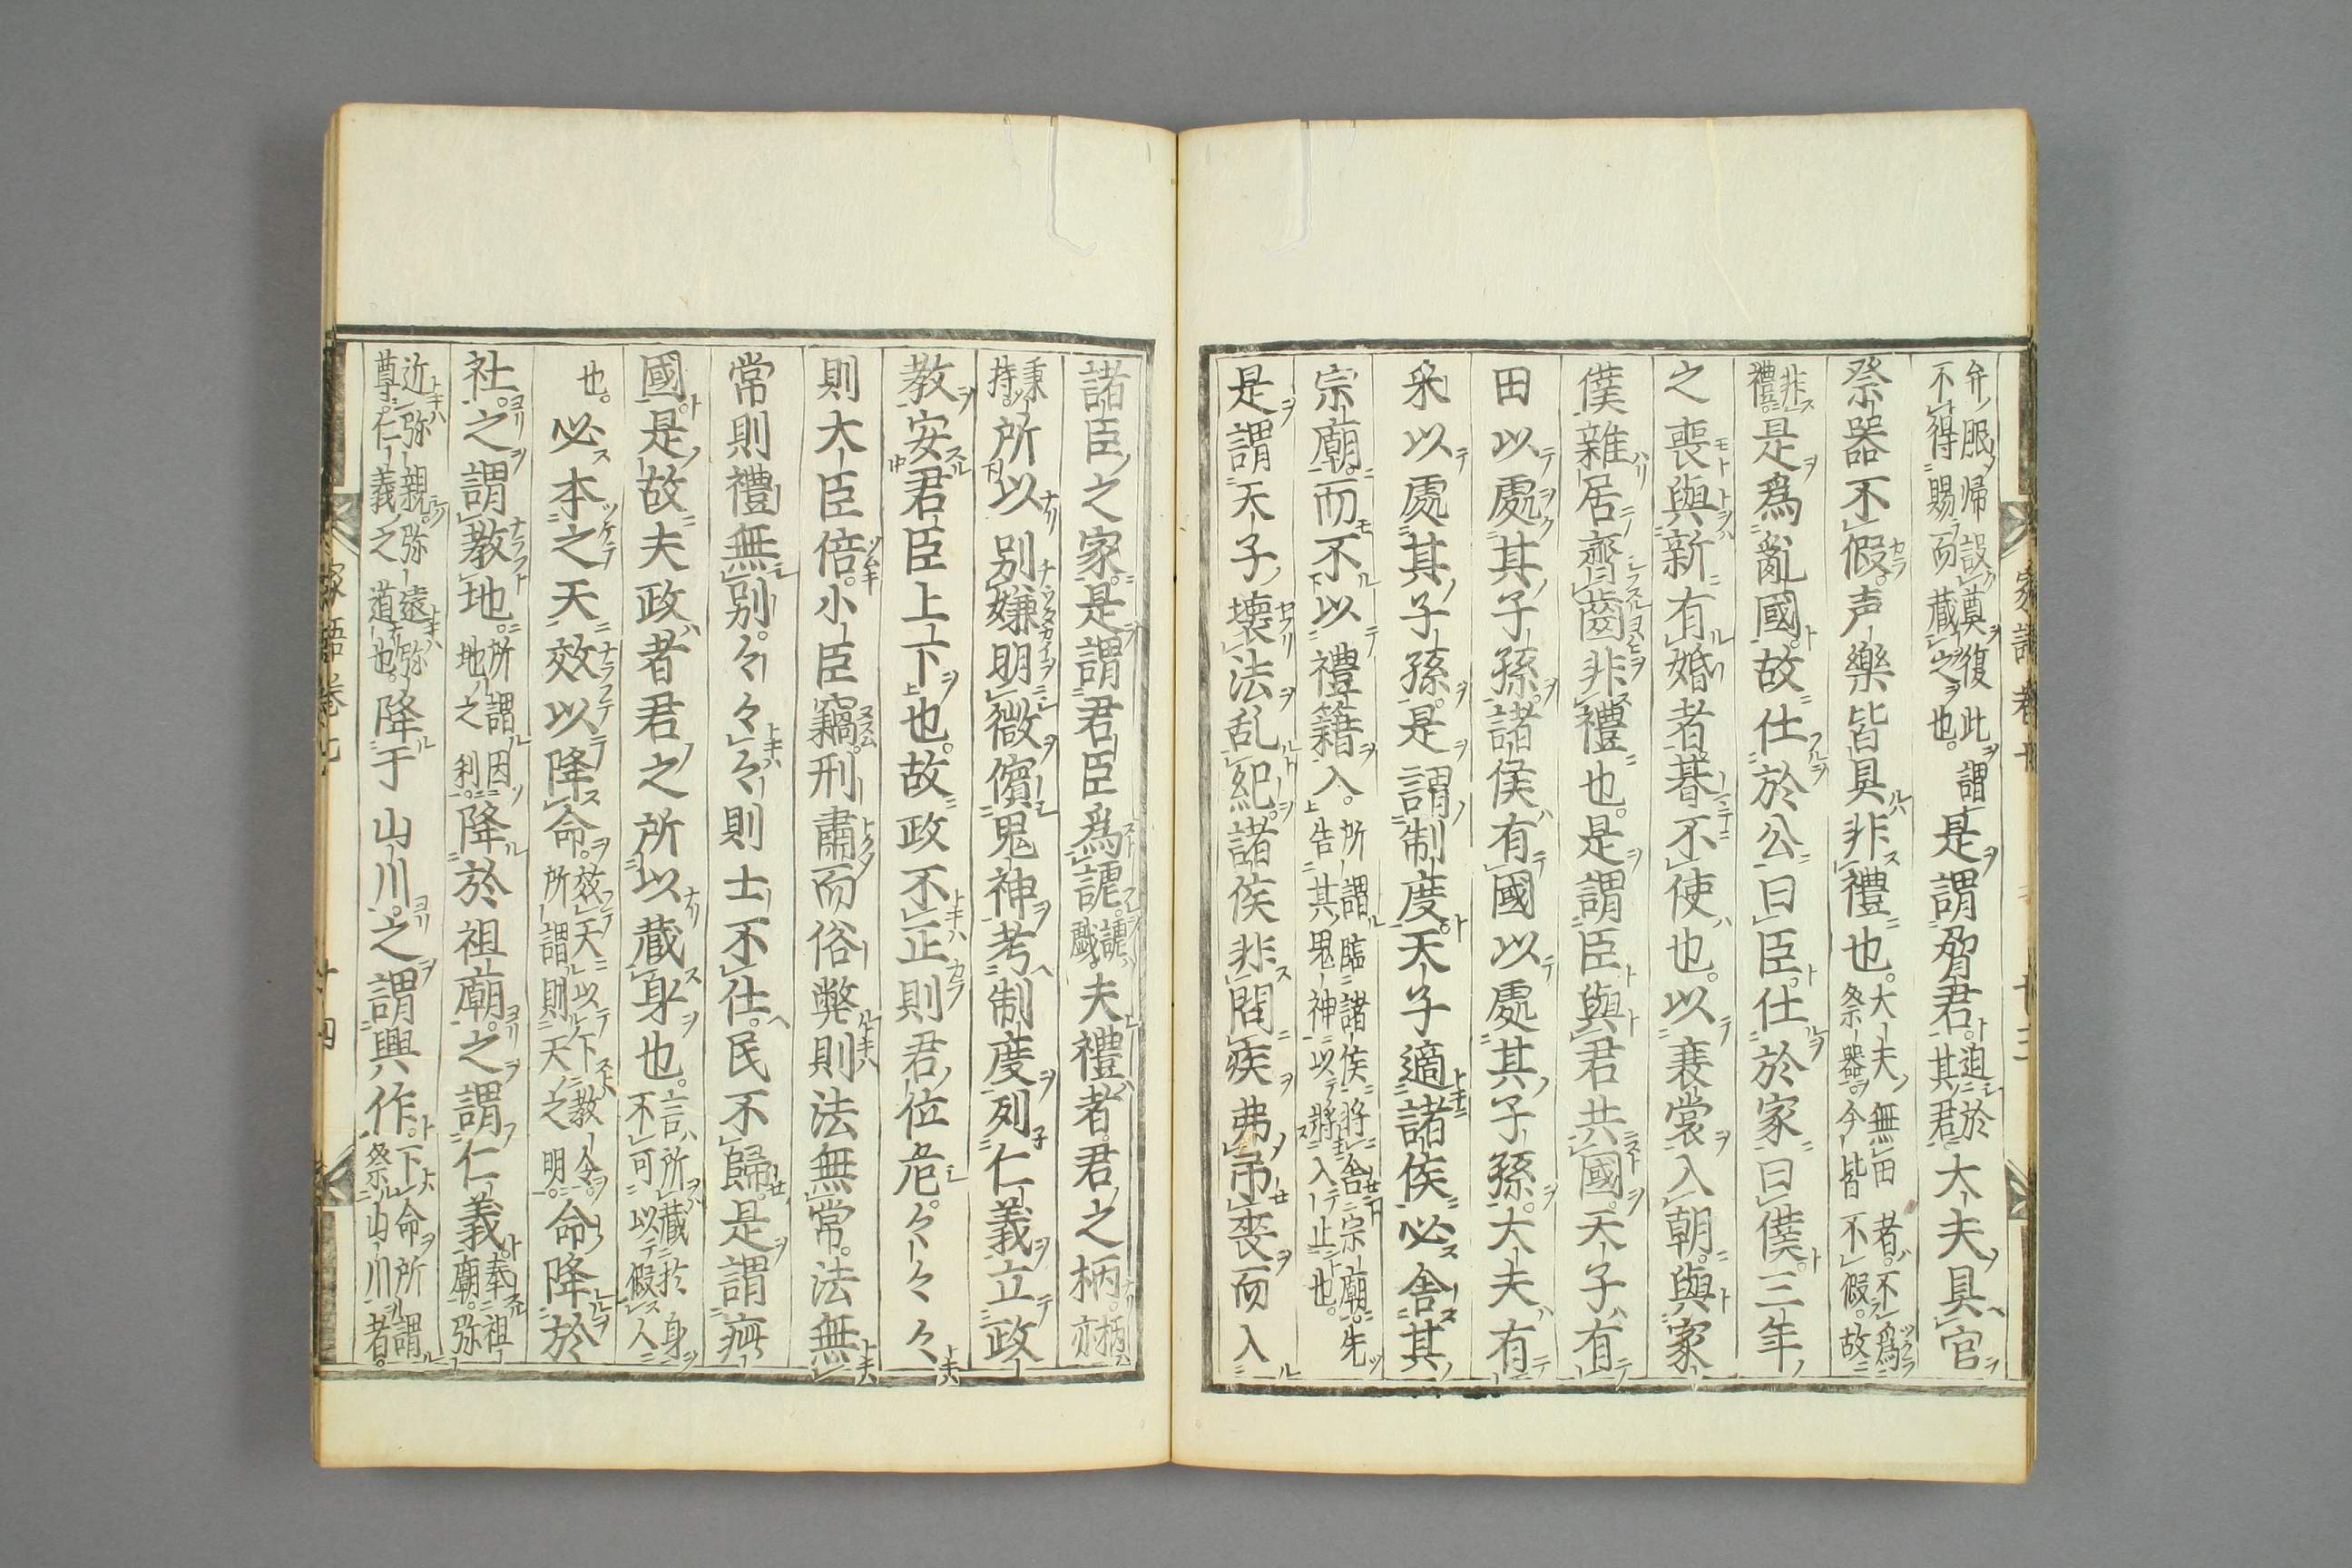 弁服帰設奠復此謂
不得賜而蔵之也。是謂脅君。迫於其君。大夫具官
祭器不假。声樂皆具非禮也。大夫無田者。不為祭器。今皆不假。故
非禮。是爲亂國。故仕於公曰臣。仕於家曰僕。三年
之喪與新有婚者朞不使也。以衰裳入朝。與家
僕雜居齊齒非禮也。是謂臣與君共國。天子有
田以處其子孫。諸侯有國以處其子孫。大夫有
采以處其子孫。是謂制度。天子適諸侯必舍其
宗廟。而不以禮籍入。所謂臨諸侯将舍宗廟。先告其鬼神以將入止也。
是謂天子壊法乱紀。諸侯非問疾弔喪而入
諸臣之家。是謂君臣爲謔。謔戯。夫禮者。君之柄。柄亦
秉持。所以別嫌明微儐鬼神考制度列仁義立政
教安君臣上下也。故政不正則君位危。々々々
則大臣倍。小臣竊。刑肅而俗弊則法無常。法無
常則禮無別。々々々則士不仕。民不歸。是謂疵
國。是故夫政者君之所以蔵身也。言所蔵於身不可以假人
也。必本之天效以降命。效天以下教令。所謂則天之明。命降於
社。之謂教地。所謂因地之利。降於祖廟。之謂仁義。奉祖廟。弥
近弥親。弥遠弥尊。仁義之道也。降于山川。之謂興作。下命所謂祭山川者。
家語巻七
十四